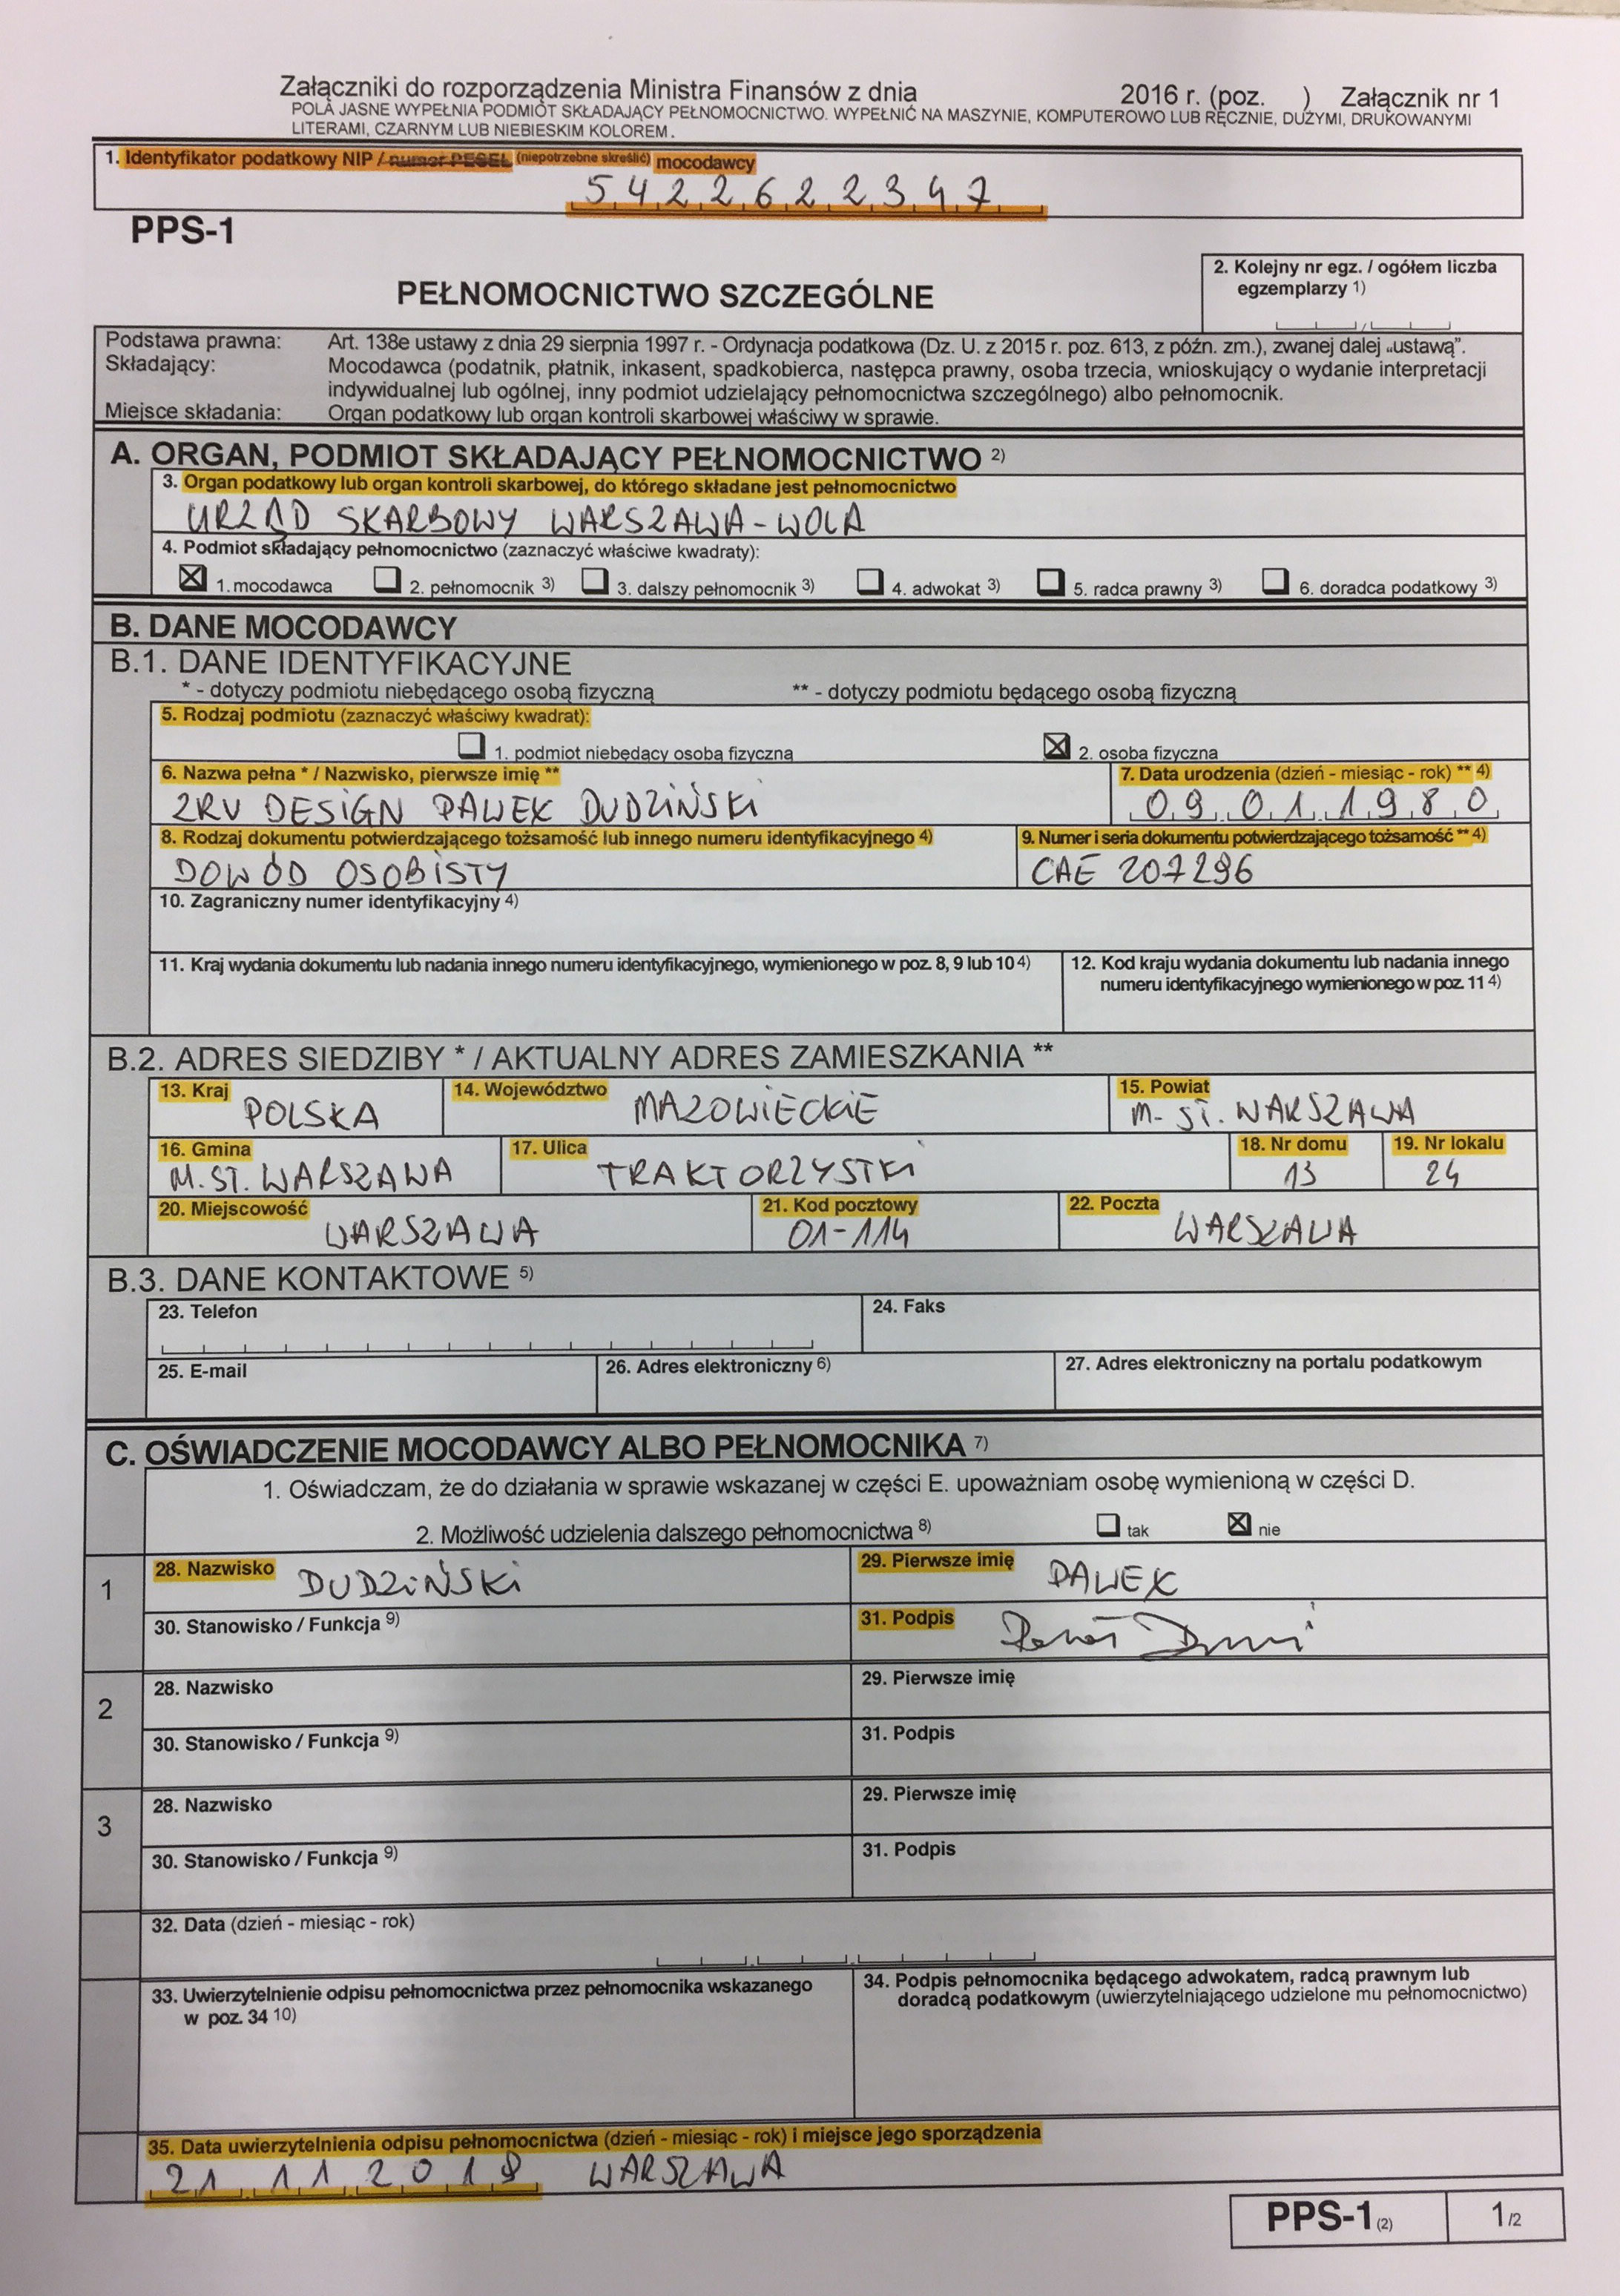 Załączniki do rozporządzenia Ministra Finansów z dnia 2016 r. (poz. ) Załącznik nr 1
POLA JASNE WYPEŁNIA PODMIOT SKŁADAJĄCY PEŁNOMOCNICTWO. WYPEŁNIĆ NA MASZYNIE, KOMPUTEROWO LUB RĘCZNIE, DUŻYMI, DRUKOWANYMI
LITERAMI, CZARNYM LUB NIEBIESKIM KOLOREM.
1. Identyfikator podatkowy NIP / numer PESEL (niepotrzebne skreślić) mocodawcy
5422622347
PPS-1
2. Kolejny nr egz. / ogółem liczba
egzemplarzy 1)
PEŁNOMOCNICTWO SZCZEGÓLNE
Podstawa prawna: Art. 138e ustawy z dnia 29 sierpnia 1997 r. - Ordynacja podatkowa (Dz. U. z 2015 r. poz. 613, z późn. zm.), zwanej dalej „ustawą”.
Składający: Mocodawca (podatnik, płatnik, inkasent, spadkobierca, następca prawny, osoba trzecia, wnioskujący o wydanie interpretacji
indywidualnej lub ogólnej, inny podmiot udzielający pełnomocnictwa szczególnego) albo pełnomocnik.
Miejsce składania: Organ podatkowy lub organ kontroli skarbowej właściwy w sprawie.
A. ORGAN, PODMIOT SKŁADAJĄCY PEŁNOMOCNICTWO 2)
3. Organ podatkowy lub organ kontroli skarbowej, do którego składane jest pełnomocnictwo
URZĄD SKARBOWY WARSZAWA-WOLA
4. Podmiot składający pełnomocnictwo (zaznaczyć właściwe kwadraty):
1. mocodawca 2. pełnomocnik 3) 3. dalszy pełnomocnik 3) 4. adwokat 3) 5. radca prawny 3) 6. doradca podatkowy 3)
B. DANE MOCODAWCY
B.1. DANE IDENTYFIKACYJNE
* - dotyczy podmiotu niebędącego osobą fizyczną ** - dotyczy podmiotu będącego osobą fizyczną
5. Rodzaj podmiotu (zaznaczyć właściwy kwadrat):
1. podmiot niebędący osobą fizyczną 2. osoba fizyczna
6. Nazwa pełna * / Nazwisko, pierwsze imię ** 7. Data urodzenia (dzień - miesiąc - rok) ** 4)
ZRV DESIGN PAWEŁ DUDZIŃSKI 09 01 1980
8. Rodzaj dokumentu potwierdzającego tożsamość lub innego numeru identyfikacyjnego 4) 9. Numer i seria dokumentu potwierdzającego tożsamość ** 4)
DOWÓD OSOBISTY CAE 207296
10. Zagraniczny numer identyfikacyjny 4)
11. Kraj wydania dokumentu lub nadania innego numeru identyfikacyjnego, wymienionego w poz. 8, 9 lub 10 4) 12. Kod kraju wydania dokumentu lub nadania innego
numeru identyfikacyjnego wymienionego w poz. 11 4)
B.2. ADRES SIEDZIBY * / AKTUALNY ADRES ZAMIESZKANIA **
13. Kraj 14. Województwo 15. Powiat
POLSKA MAZOWIECKIE M. ST. WARSZAWA
16. Gmina 17. Ulica 18. Nr domu 19. Nr lokalu
M. ST. WARSZAWA TRAKTORZYSTKI 13 24
20. Miejscowość 21. Kod pocztowy 22. Poczta
WARSZAWA 01-114 WARSZAWA
B.3. DANE KONTAKTOWE 5)
23. Telefon 24. Faks
25. E-mail 26. Adres elektroniczny 6) 27. Adres elektroniczny na portalu podatkowym
C. OŚWIADCZENIE MOCODAWCY ALBO PEŁNOMOCNIKA 7)
1. Oświadczam, że do działania w sprawie wskazanej w części E. upoważniam osobę wymienioną w części D.
2. Możliwość udzielenia dalszego pełnomocnictwa 8) tak nie
1 28. Nazwisko DUDZIŃSKI 29. Pierwsze imię PAWEŁ
30. Stanowisko / Funkcja 9) 31. Podpis
2 28. Nazwisko 29. Pierwsze imię
30. Stanowisko / Funkcja 9) 31. Podpis
3 28. Nazwisko 29. Pierwsze imię
30. Stanowisko / Funkcja 9) 31. Podpis
32. Data (dzień - miesiąc - rok)
33. Uwierzytelnienie odpisu pełnomocnictwa przez pełnomocnika wskazanego 34. Podpis pełnomocnika będącego adwokatem, radcą prawnym lub
w poz. 34 10) doradcą podatkowym (uwierzytelniającego udzielone mu pełnomocnictwo)
35. Data uwierzytelnienia odpisu pełnomocnictwa (dzień - miesiąc - rok) i miejsce jego sporządzenia
21 11 2018 WARSZAWA
PPS-1 (2) 1/2